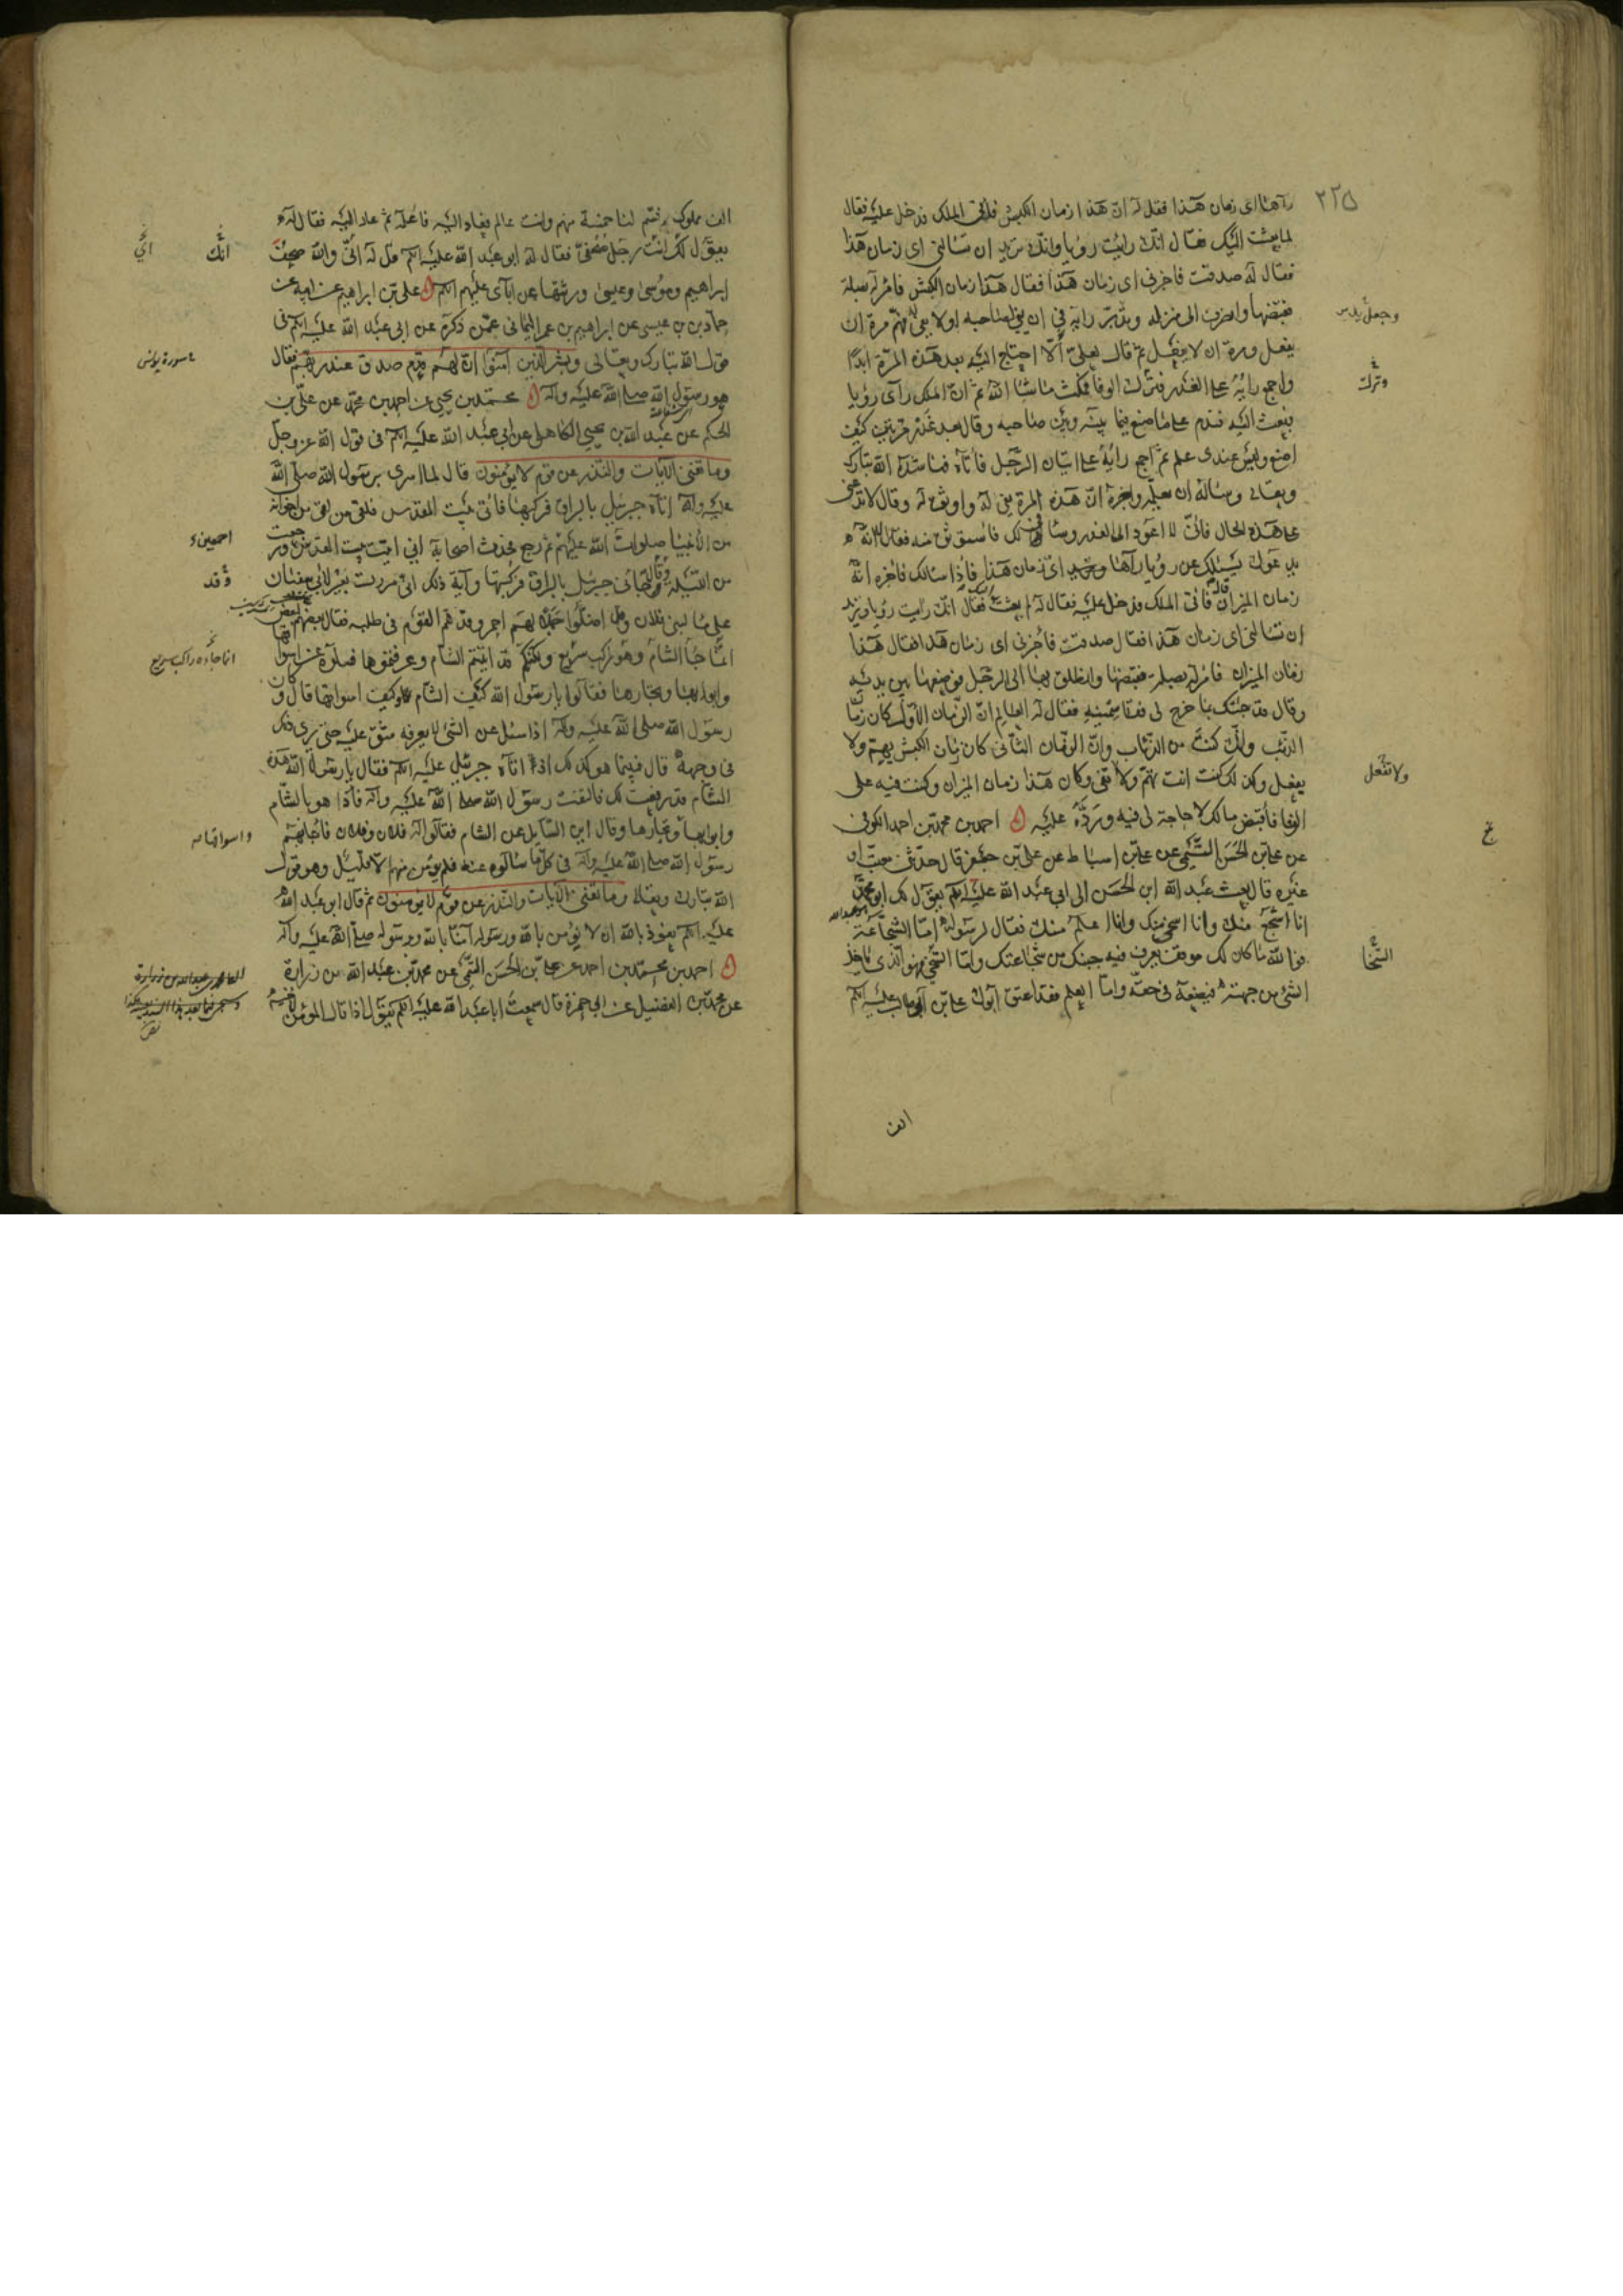 ٢٢٥
رآها اى زمان هذا فقل له ان هذا زمان الكبش فاتى الملك فدخل عليه فقال
لما بعثت اليك فقال انك رايت رؤيا وانك تريد ان تسالنى اى زمان هذا
فقال له صدقت فاخبرنى اى زمان هذا فقال هذا زمان الكبش فامر له بصلة
فقبضها وانصرف الى منزله وتدبر رايه فى ان يفى لصاحبه او لا يفى له فهم مرة ان
يفعل ومرة ان لا يفعل ثم قال لعلى الا احتاج اليه بعد هذه المرة ابدا
واجمع رايه على الغدر فترك الوفا فمكث ما شا الله ثم ان الملك رآى رؤيا
فبعث اليه فندم على ما صنع فيما بينه وبين صاحبه وقال بعد غدر مرتين كيف
اصنع وليس عندى علم ثم اجمع رايه على اتيان الرجل فاتاه فناشده الله تبارك
وتعالى وساله ان يعلمه واخبره ان هذه المرة يفى له واوثق له وقال لا تدعنى
على هذه الحال فانى لا اعود الى الغدر وسافى لك فاستوثق منه فقال انه
يدعوك يسئلك عن رؤيا رآها اى زمان هذا فاذا سالك فاخبره انه
زمان الميزان قال فاتى الملك فدخل عليه فقال له لم بعثت اليك فقال انك رايت رؤيا وتريد
ان تسالنى اى زمان هذا فقال صدقت فاخبرنى اى زمان هذا فقال هذا
زمان الميزان فامر له بصلة فقبضها وانطلق بها الى الرجل فوضعها بين يديه
وقال قد جئتك بما خرج لى فقاسمنيه فقال له العالم ان الزمان الاول كان زمان
الذئب وانك كنت من الذئاب وان الزمان الثانى كان زمان الكبش يهم ولا
يفعل وكذلك كنت انت تهم ولا تفى وكان هذا زمان الميزان وكنت فيه على
الوفا فاقبض مالك لا حاجة لى فيه ورده عليه احمد بن محمد بن احمد الكوفى
عن على بن الحسن التيمى عن على بن اسباط عن على بن جعفر قال حدثنى معتب او
غيره قال بعث عبد الله ابن الحسن الى ابى عبد الله عليه السلم يقول لك ابو محمد
انا اشجع منك وانا اسخى منك وانا اعلم منك فقال لرسوله اما الشجاعة
فوالله ما كان لك موقف يعرف فيه جبنك من شجاعتك واما السخى فهو الذى ياخذ
الشئ من جهته فيضعه فى حقه واما العلم فقد اعتق ابوك على بن ابى طالب عليه السلم
الف
وترك
ولا تفعل
السخا
الف مملوك فسم لنا خمسة منهم وانت عالم فعاد اليه فاعلمه ثم عاد اليه فقال له
يقول لك انت رجل صحفى فقال له ابو عبد الله عليه السلم قل له اى والله صحف
ابراهيم وموسى وعيسى ورثتها عن آبآى عليهم السلم على بن ابراهيم عن ابيه عن
حماد بن عيسى عن ابراهيم بن عمر اليمانى عمن ذكره عن ابى عبد الله عليه السلم فى
قول الله تبارك وتعالى وبشر الذين آمنوا ان لهم قدم صدق عند ربهم فقال
هو رسول الله صلى الله عليه وآله محمد بن يحيى عن احمد بن محمد عن على بن
الحكم عن عبد الله بن يحيى الكاهلى عن ابى عبد الله عليه السلم فى قول الله عز وجل
وما تغنى الآيات والنذر عن قوم لا يؤمنون قال لما اسرى برسول الله صلى الله
عليه وآله اتاه جبرئيل بالبراق فركبها فاتى بيت المقدس فلقى من لقى من اخوانه
من الانبيا صلوات الله عليهم ثم رجع فحدث اصحابه انى اتيت بيت المقدس ورجعت
من الليلة وقد جائنى جبرئيل بالبراق فركبتها وآية ذلك انى مررت بعير لابى سفيان
على ما لبنى فلان وقد اضلوا جملا لهم احمر وقد هم القوم فى طلبه فقال بعضهم لبعض
انما جا الشام وهو راكب سريع ولكنكم قد اتيتم الشام وعرفتموها فسلوه عن اسواقها
وابوابها وتجارها فقالوا يا رسول الله كيف الشام وكيف اسواقها قال وكان
رسول الله صلى الله عليه وآله اذا سئل عن الشئ لا يعرفه شق عليه حتى يرى ذلك
فى وجهه قال فبينما هو كذلك اذ اتاه جبرئيل عليه السلم فقال يا رسول الله هذه
الشام قد رفعت لك فالتفت رسول الله صلى الله عليه وآله فاذا هو بالشام
وابوابها وتجارها وقال اين السايل عن الشام فقالوا له فلان وفلان فاجابهم
رسول الله صلى الله عليه وآله فى كل ما سالوه عنه فلم يؤمن منهم الا قليل وهو قول
الله تبارك وتعالى وما تغنى الآيات والنذر عن قوم لا يؤمنون ثم قال ابو عبد الله
عليه السلم نعوذ بالله ان لا نؤمن بالله ورسوله آمنا بالله وبرسوله صلى الله عليه وآله
احمد بن محمد بن احمد عن على بن الحسن التيمى عن محمد بن عبد الله بن زرارة
عن محمد بن الفضيل عن ابى حمزة قال سمعت ابا عبد الله عليه السلم يقول اذا قال المؤمن لاخيه
انك
اى
سورة يونس
اجمعين
وقد
انما جاءه راكب سريع
واسواقها